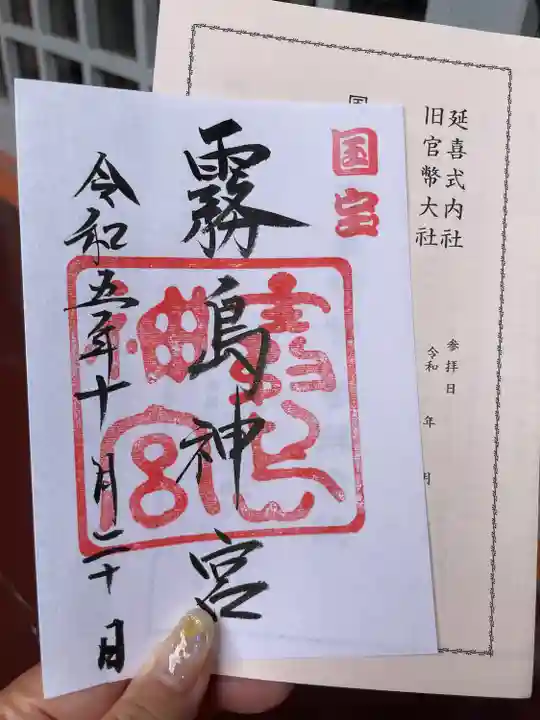 延喜式内社
旧官幣大社
参拝日
令和　年　月
国
国宝
霧島神宮
令和五年十月二十日